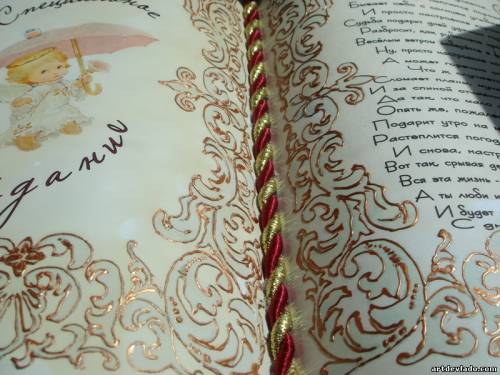 Специальное
здание
Бывает небо с
И просто
Судьба подарит
Разбросит, как
Весёлым ветром
Ну, просто
А может
Что ж
Сломает планы
И за спиной
Да так, что
Опять же,
Подарит утро на
Растеплится
И снова,
Вот так, срывая
Вся эта жизнь -
А ты люби и
И будет
С
artdevlado.com